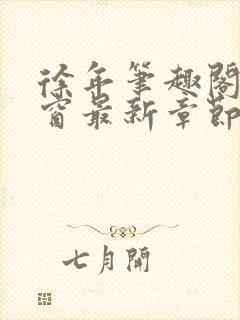 徐年筆趣閣
窗最新章節
七月開